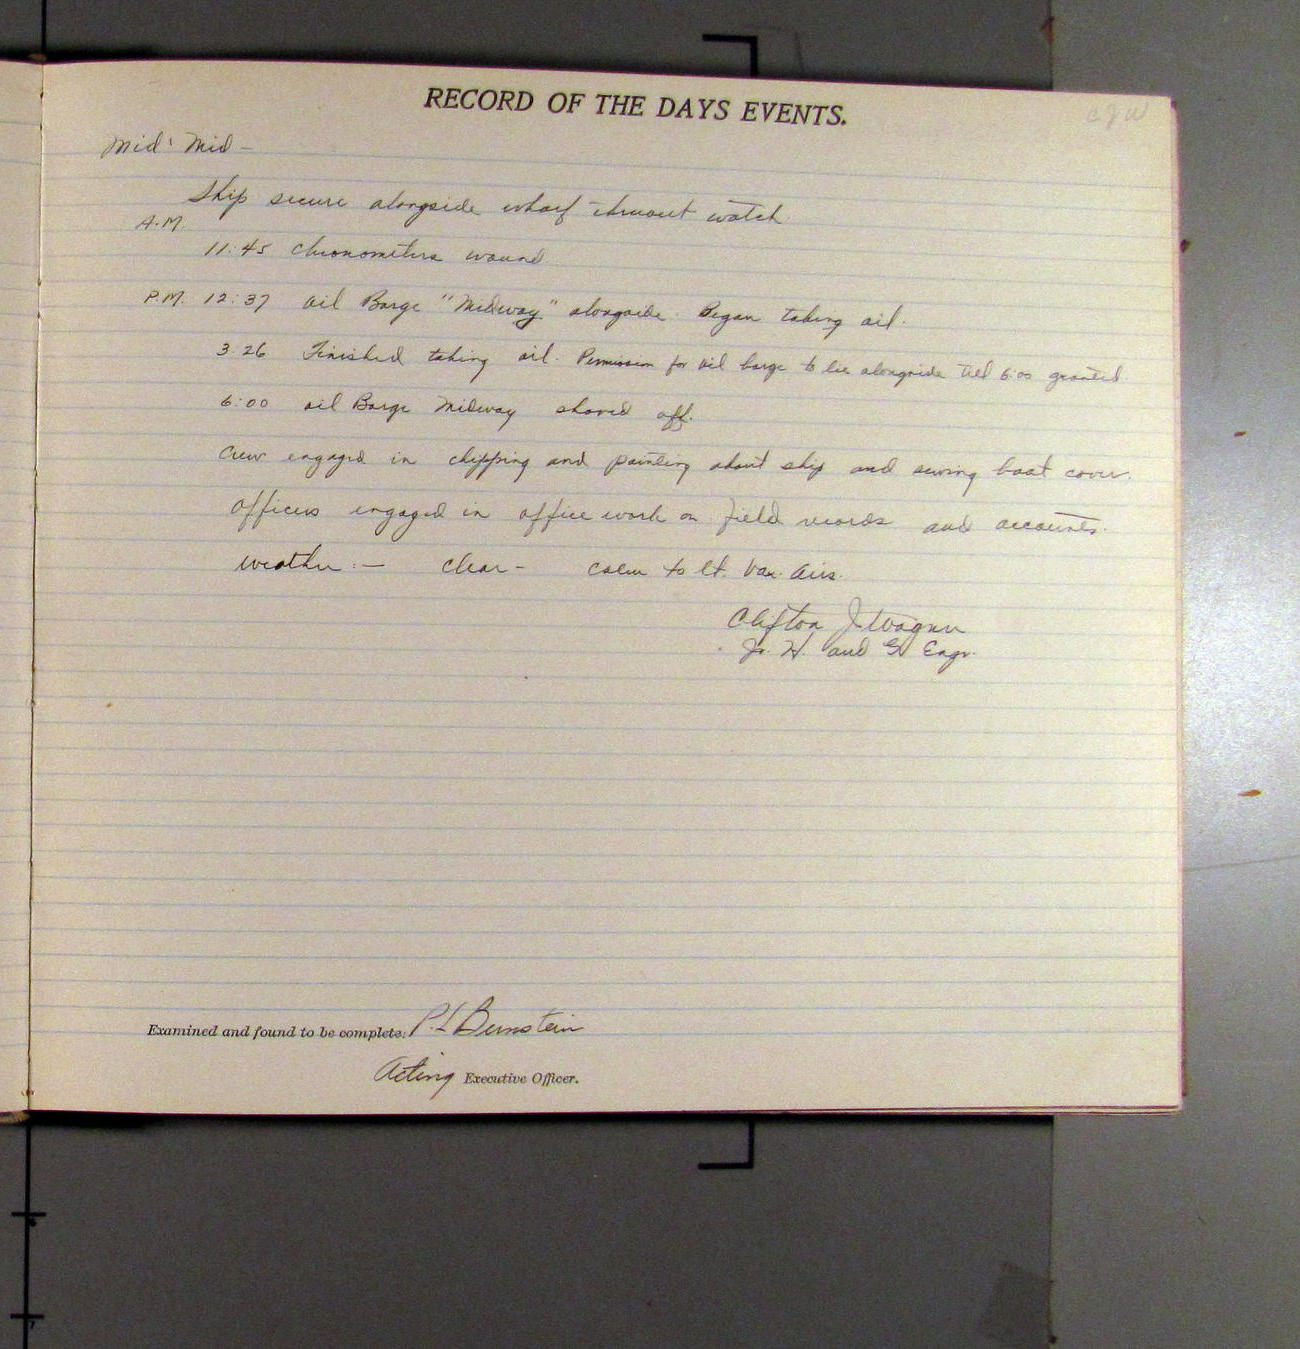 RECORD OF THE DAYS EVENTS.
CJW
Mid - Mid -
Ship secure alongside wharf thruout watch
A.M.
11:45 Chronometers wound
P.M. 12:37 Oil Barge "Midway" alongside. Began taking oil.
3:26 Finished taking oil. Permission for oil barge to lie alongside till 6:00 granted.
6:00 Oil Barge Midway shoved off.
Crew engaged in chipping and painting about ship and sewing boat cover.
Officers engaged in office work on field records and accounts.
Weather:- Clear - Calm to lt. Var. Airs.
Clifton J. Wagner
Jr. H. and G. Engr.
Examined and found to be complete: P.L. Bernstein
Acting Executive Officer.